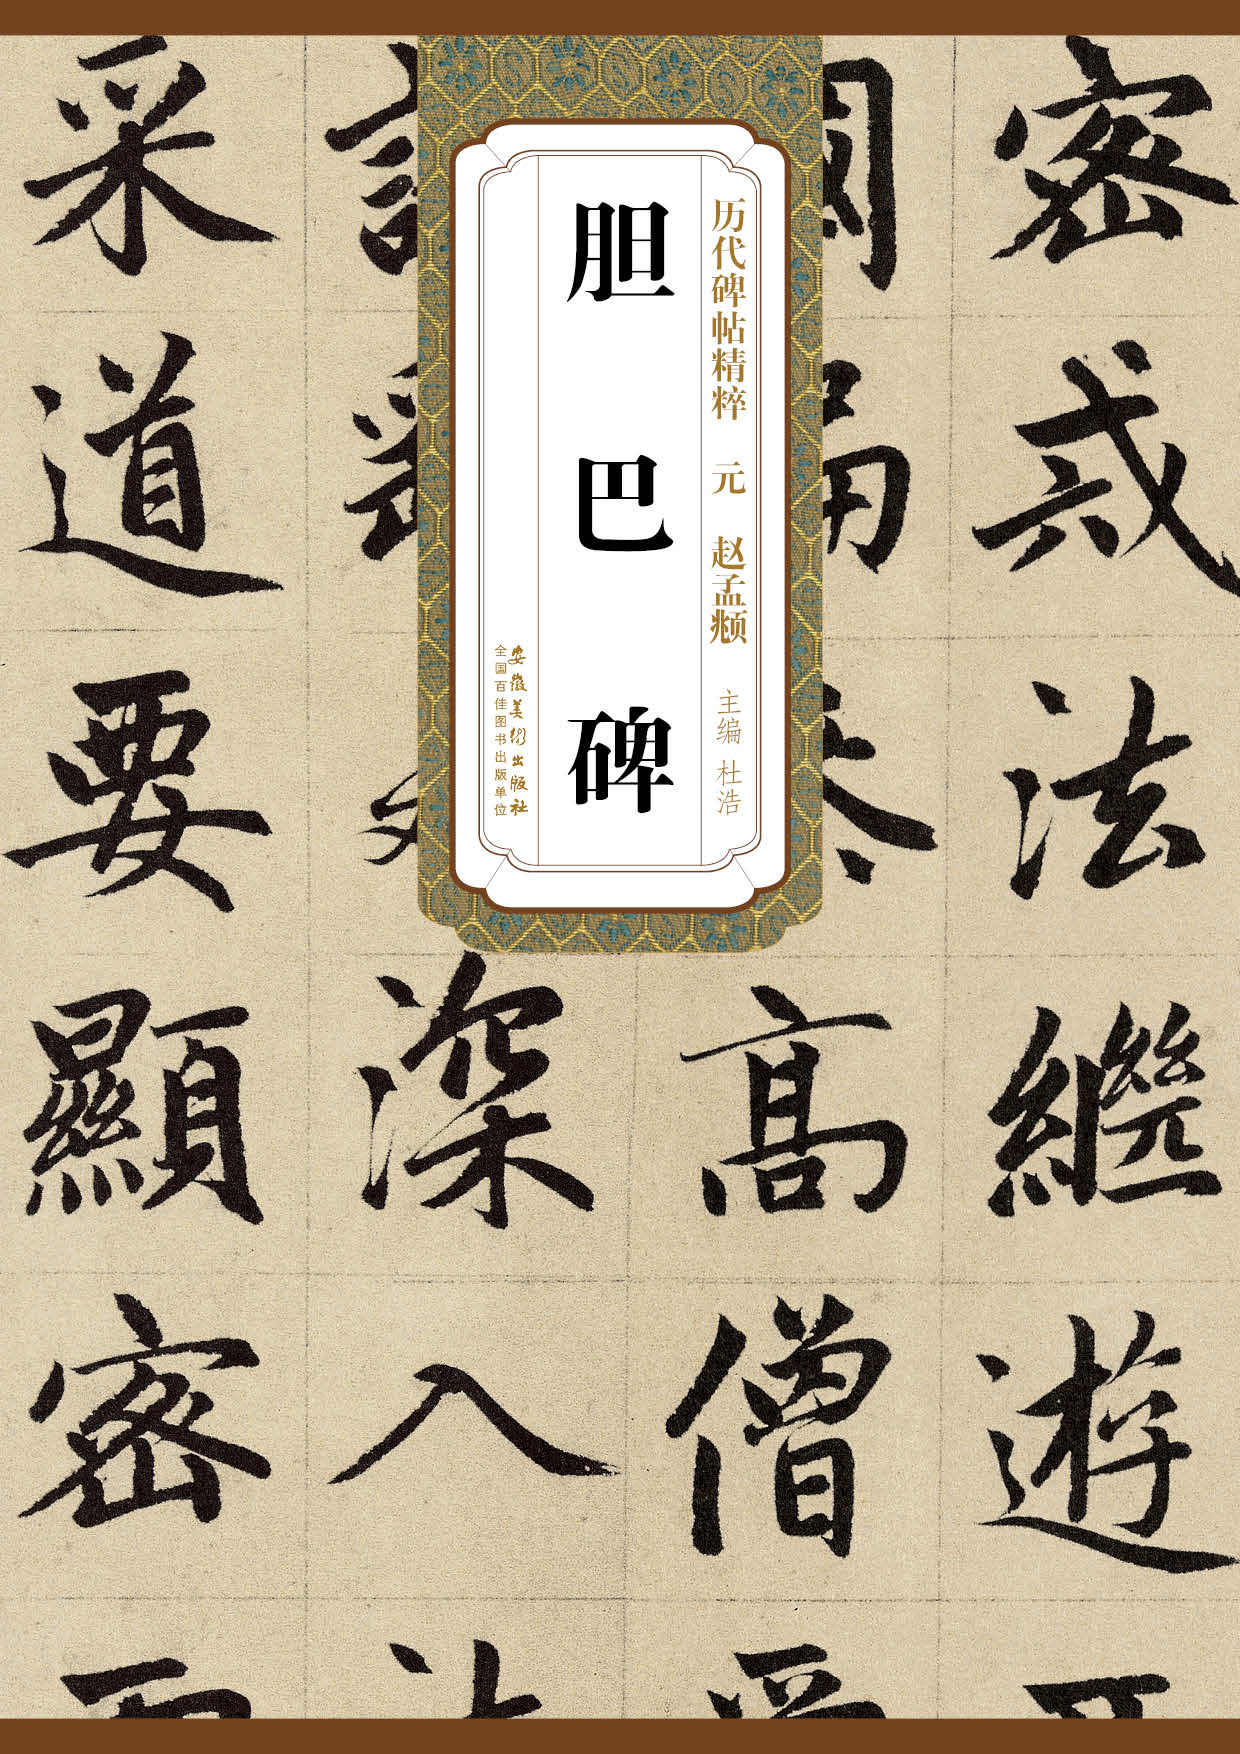 历代碑帖精粹 元 赵孟𫖯 主编 杜浩
胆巴碑
安徽美術出版社
全国百佳图书出版单位
密戒法繼遊
高僧
深入
采道要顯密